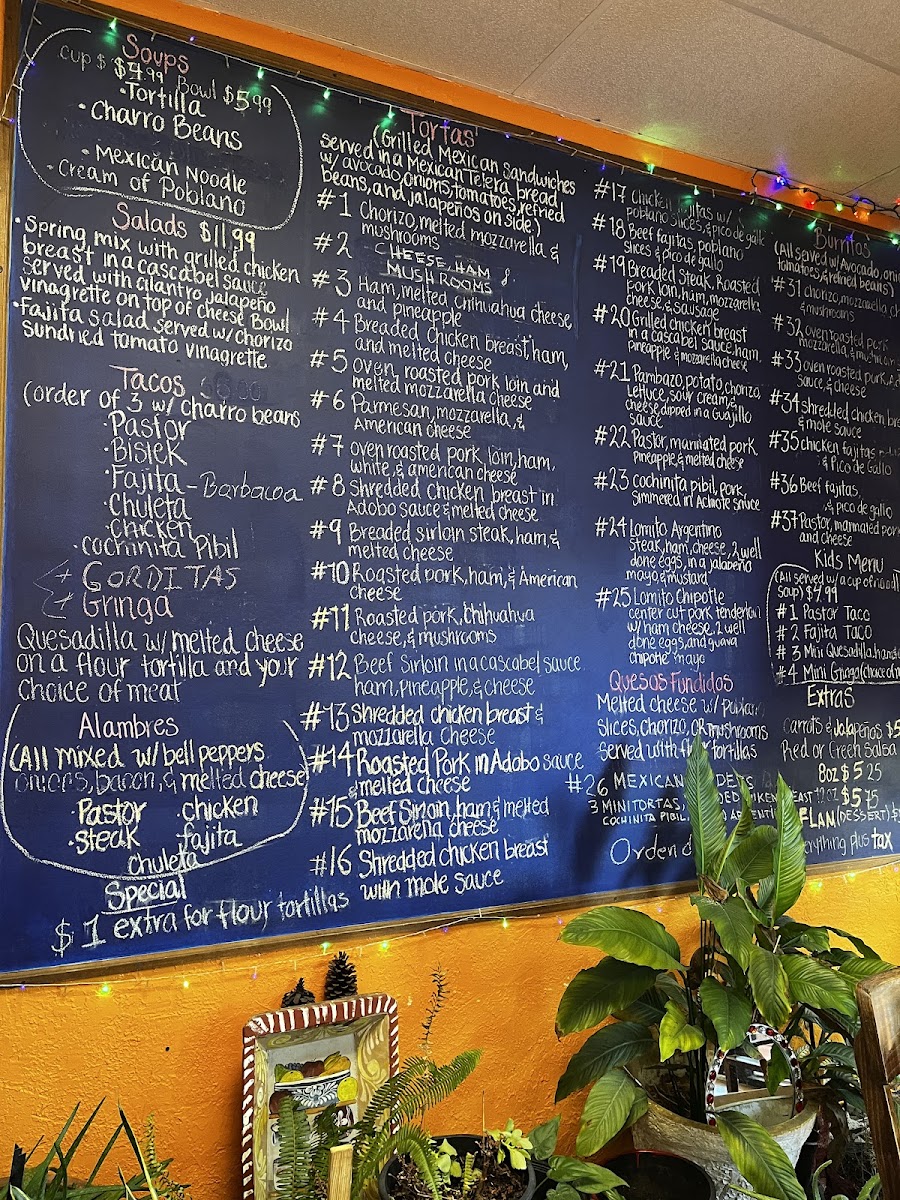 Soups
Cup $ $4.99 Bowl $5.99
·Tortilla
·Charro Beans
·Mexican Noodle
·Cream of Poblano
Salads $11.99
·Spring mix with grilled chicken
breast in a cascabel sauce
served with cilantro jalapeño
vinagrette on top of cheese Bowl
·Fajita salad served w/chorizo
sundried tomato vinagrette
Tacos
(order of 3 w/ charro beans
·Pastor
·Bistek
·Fajita - Barbacoa
·Chuleta
·chicken
·cochinita Pibil
GORDITAS
Gringa
Quesadilla w/melted cheese
on a flour tortilla and your
choice of meat
Alambres
(All mixed w/bell peppers
onions, bacon, & melted cheese)
·Pastor ·chicken
·steak ·fajita
·chuleta
Special
$1 extra for flour tortillas
Tortas
(Grilled Mexican Sandwiches
served in a Mexican Telera bread
w/avocado, onions, tomatoes, refried
beans, and jalapeños on side.)
#1 Chorizo, melted mozzarella &
mushrooms
#2 CHEESE, HAM &
MUSHROOMS
#3 Ham, melted, chihuahua cheese,
and pineapple
#4 Breaded Chicken breast, ham,
and melted cheese
#5 oven, roasted pork loin and
melted mozzarella cheese
#6 Parmesan, mozzarella, &
American cheese
#7 oven roasted pork loin, ham,
white, & american cheese
#8 Shredded Chicken breast in
Adobo sauce & melted cheese
#9 Breaded sirloin steak, ham &
melted cheese
#10 Roasted pork, ham, & American
cheese
#11 Roasted pork, Chihuahua
cheese, & mushrooms
#12 Beef Sirloin in a cascabel sauce
ham, pineapple, & cheese
#13 Shredded chicken breast &
mozzarella cheese
#14 Roasted Pork in Adobo sauce
& melted cheese
#15 Beef Sirloin, ham & melted
mozzarella cheese
#16 Shredded chicken breast
with mole sauce
#17 Chicken fajitas w/
poblano slices, & pico de gallo
#18 Beef fajitas, poblano
slices & pico de gallo
#19 Breaded Steak, Roasted
pork loin, ham, mozzarella
cheese, & sausage
#20 Grilled chicken breast
in a cascabel sauce, ham,
Pineapple & mozzarella cheese
#21 Pambazo, potato, chorizo,
Lettuce, sour cream &
cheese dipped in a Guajillo
sauce
#22 Pastor, marinated pork
Pineapple, & melted cheese
#23 cochinita pibil, pork,
simmered in Achiote sauce
#24 Lomito Argentino
steak, ham, cheese, 2 well
done eggs, in a jalapeño
mayo & mustard
#25 Lomito Chipotle
center cut pork tenderloin
w/ ham cheese, 2 well
done eggs, and guava
chipotle mayo
Quesos Fundidos
Melted cheese w/ Poblano
slices, chorizo, OR mushrooms
served with flour tortillas
#26 MEXICAN
3 MINI TORTAS,
COCHINITA PIBIL
Orden
Burritos
(All served w/Avocado, oni
tomatoes, & refried beans)
#31 chorizo, mozzarella, ch
& mushrooms
#32 oven roasted pork
mozzarella, & mushroom
#33 oven roasted pork, Ad
Sauce, & cheese
#34 shredded chicken brea
& mole sauce
#35 chicken fajitas
& Pico de Gallo
#36 Beef fajitas,
& pico de gallo
#37 Pastor, marinated pork
and cheese
Kids Menu
(All served w/a cup of noodl
soup) $4.99
#1 Pastor Taco
#2 Fajita Taco
#3 Mini Quesadilla, ham
#4 Mini Gringa (choice of m
Extras
carrots & Jalapeños $5
Red or Green Salsa
8oz $5.25
12oz $5.75
FLAN (DESSERT) $
everything plus tax